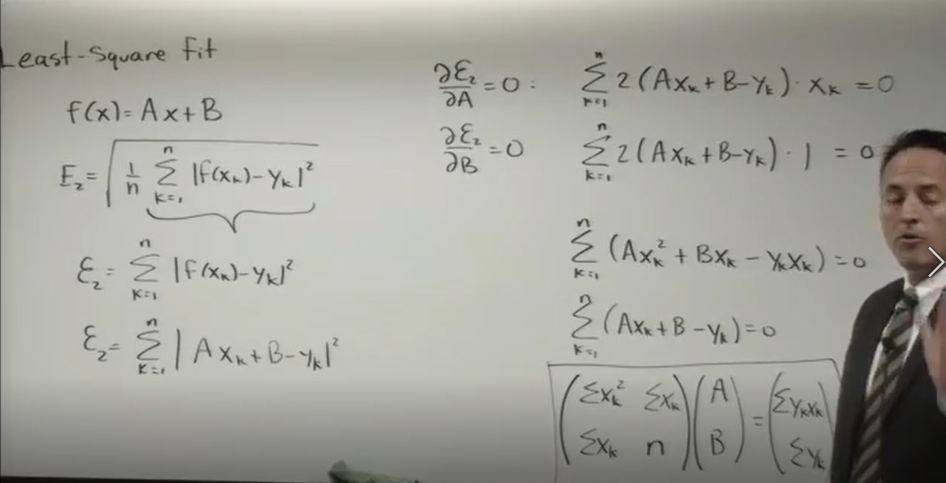 Least-Square Fit
f(x)=Ax+B
E₂=√(1/n Σₖ₌₁ⁿ |f(xₖ)-yₖ|²)
ℰ₂=Σₖ₌₁ⁿ |f(xₖ)-yₖ|²
ℰ₂=Σₖ₌₁ⁿ |Axₖ+B-yₖ|²
∂ℰ₂/∂A=0: Σₖ₌₁ⁿ 2(Axₖ+B-yₖ)·xₖ=0
∂ℰ₂/∂B=0 Σₖ₌₁ⁿ 2(Axₖ+B-yₖ)·1=0
Σₖ₌₁ⁿ (Axₖ²+Bxₖ-yₖxₖ)=0
Σₖ₌₁ⁿ (Axₖ+B-yₖ)=0
(Σxₖ² Σxₖ)(A)=(Σyₖxₖ)
(Σxₖ n)(B) (Σyₖ